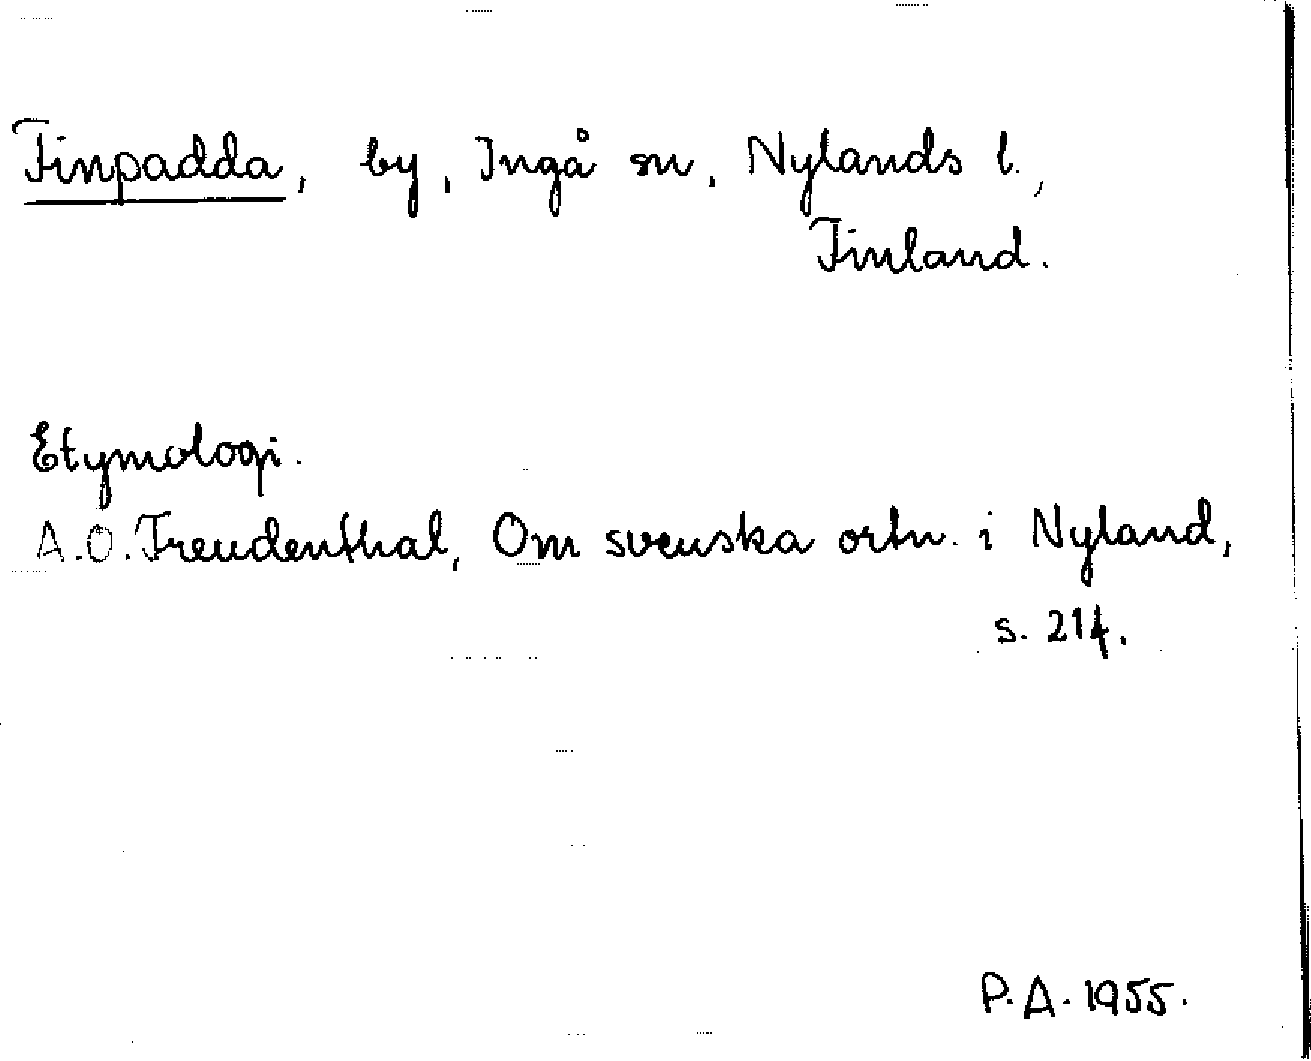 Finpadda, by, Ingå sn, Nylands l.,
Finland.
Etymologi.
A.O. Freudenthal, Om svenska ortn. i Nyland,
s. 214.
P.A. 1955.